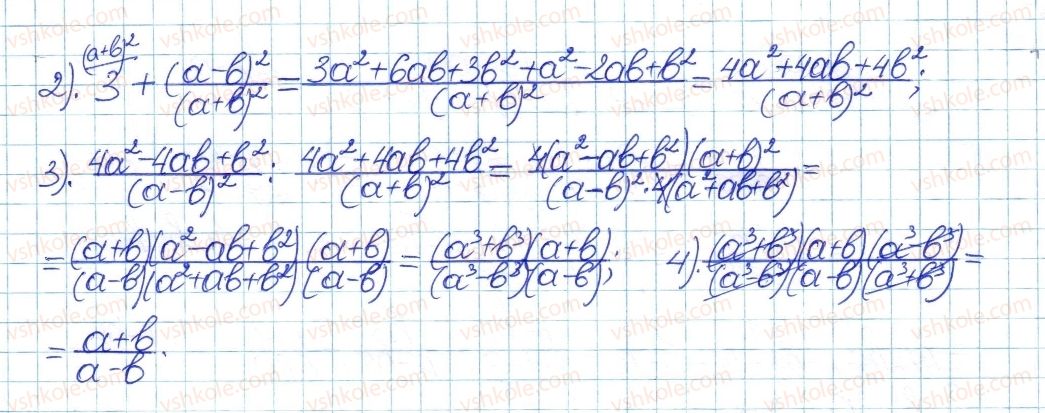 2). 3^{(a+b)^2} + (a-b)^2/(a+b)^2 = (3a^2+6ab+3b^2+a^2-2ab+b^2)/(a+b)^2 = (4a^2+4ab+4b^2)/(a+b)^2;
3). (4a^2-4ab+b^2)/(a-b)^2 : (4a^2+4ab+4b^2)/(a+b)^2 = 4(a^2-ab+b^2)(a+b)^2/((a-b)^2·4(a^2+ab+b^2)) =
= (a+b)(a^2-ab+b^2)(a+b)/((a-b)(a^2+ab+b^2)(a-b)) = (a^3+b^3)(a+b)/((a^3-b^3)(a-b)); 4). (a^3+b^3)(a+b)(a^3-b^3)/((a^3-b^3)(a-b)(a^3+b^3)) =
= (a+b)/(a-b).
vshkole.com